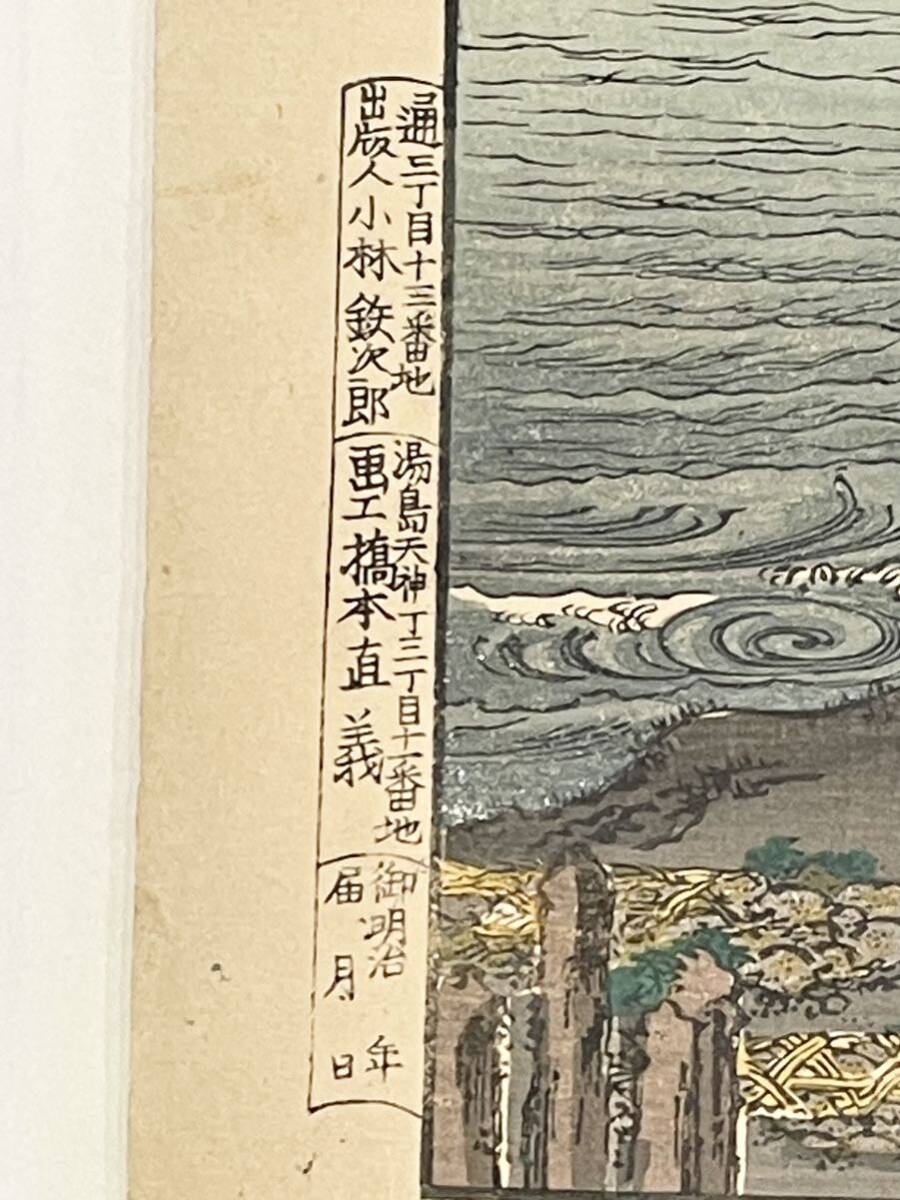 通三丁目十三番地
出版人小林鉄次郎
湯島天神丁三丁目十一番地
画工橋本直義
御明治 年
届 月 日